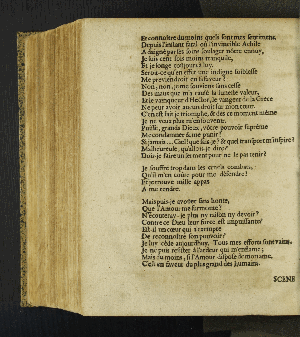 Et connoistre du moins quels sont mes sentimens.
Depuis l'instant fatal où l'invincible Achile
A daigné par les soins soulager nôtre ennuy,
Je suis cesse moins tranquile,
Et je songe toûjours à luy.
Seroit-ce qu'en effet une indigne foiblesse
Me previendroit en sa faveur?
Non, non, je me souviens sans cesse
Des maux que m'a causé la funeste valeur,
Et le vainqueur d'Hector, le vangeur de la Grece
Ne peut avoir aucun droit sur mon cœur.
C'en est fait je triomphe, & dés ce moment même
Je ne veux plus m'en souvenir.
Puisse, grands Dieux, vôtre pouvoir suprême
Me condamner à me punir!
Si jamais... Ciel! que fais-je? & quel transport m'inspire?
Malheureuse, qu'allois-je dire?
Dois-je faire un serment pour ne le pas tenir?
Je souffre trop dans les cruels combats,
Qu'il m'en coûte pour me défendre?
Et je trouve mille appas
A me rendre.
Mais puis-je avoüer sans honte,
Que l'Amour me surmonte?
N'écouteray-je plus ny raison ny devoir?
Contre ce Dieu leur force est impuissante?
Est-il un cœur qui s'exempte
De reconnoître son pouvoir?
Je luy cede aujourd'huy. Tous mes efforts sont vains,
Je ne puis resister à l'ardeur qui m'enflame;
Mais du moins, si l'Amour dispose de mon ame,
C'est en faveur du plus grand des humains.
SCENE